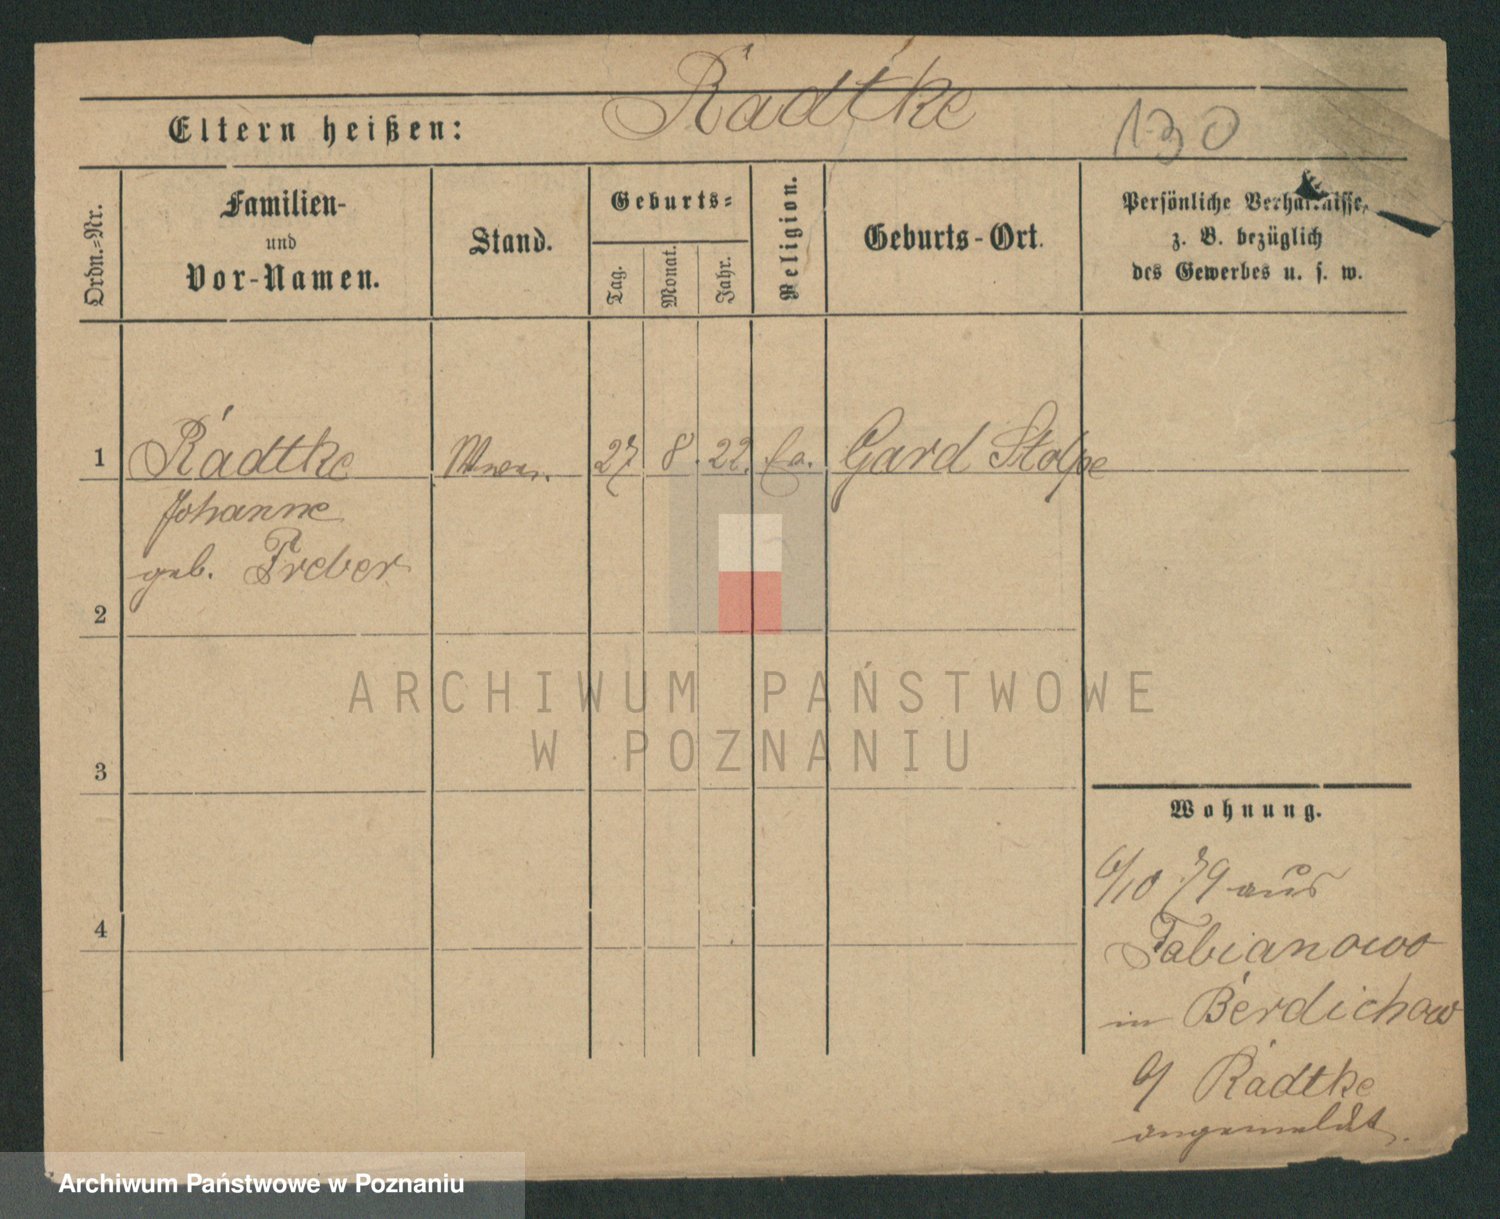 Radtke
130
Eltern heißen:
Ordn.=Nr.
Familien-
und
Vor-Namen.
Stand.
Geburts=
Tag.
Monat.
Jahr.
Religion.
Geburts-Ort.
Persönliche Verhältnisse,
z. B. bezüglich
des Gewerbes u. s. w.
1
Radtke
27 8. 22.
Gard Stolpe
Johanne
geb. Treber
2
ARCHIWUM PAŃSTWOWE
W POZNANIU
3
Wohnung.
6/10 79 aus
4
Fabianowo
in Berdichow
Radtke
angemeldet.
Archiwum Państwowe w Poznaniu